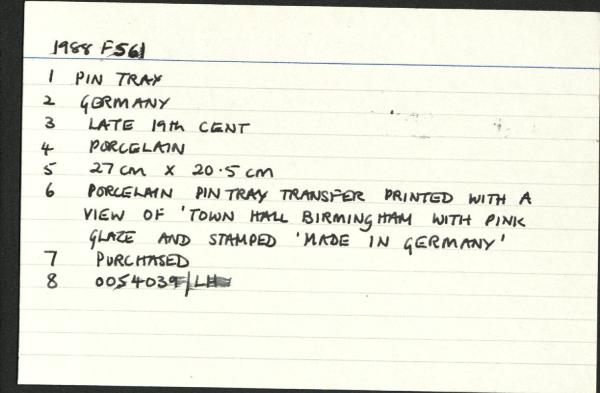 1988 F561
1 PIN TRAY
2 GERMANY
3 LATE 19th CENT
4 PORCELAIN
5 27cm X 20.5cm
6 PORCELAIN PIN TRAY TRANSFER PRINTED WITH A
VIEW OF 'TOWN HALL BIRMINGHAM WITH PINK
GLAZE AND STAMPED 'MADE IN GERMANY'
7 PURCHASED
8 0054039/LH